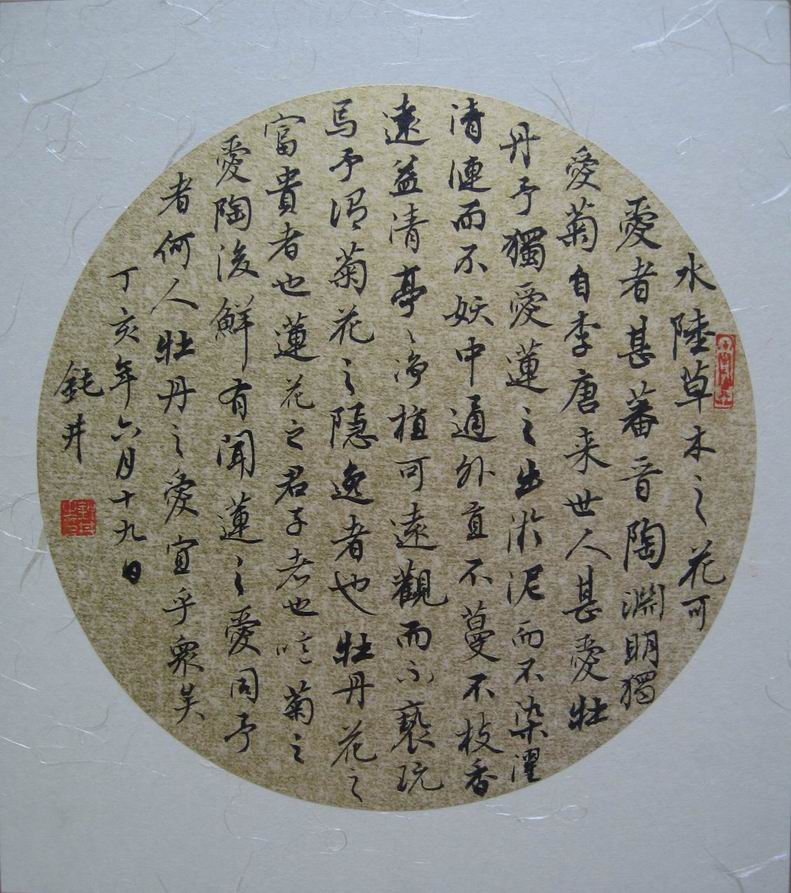 水陸草木之花可
愛者甚蕃音陶淵明獨
愛菊自李唐来世人甚愛牡
丹予獨愛蓮之出淤泥而不染濯
清漣而不妖中通外直不蔓不枝香
遠益清亭〻净植可遠觀而不褻玩
焉予謂菊花之隱逸者也牡丹花之
富貴者也蓮花之君子者也噫菊之
愛陶後鮮有聞蓮之愛同予
者何人牡丹之愛宜乎衆矣
丁亥年六月十九日
鈍井